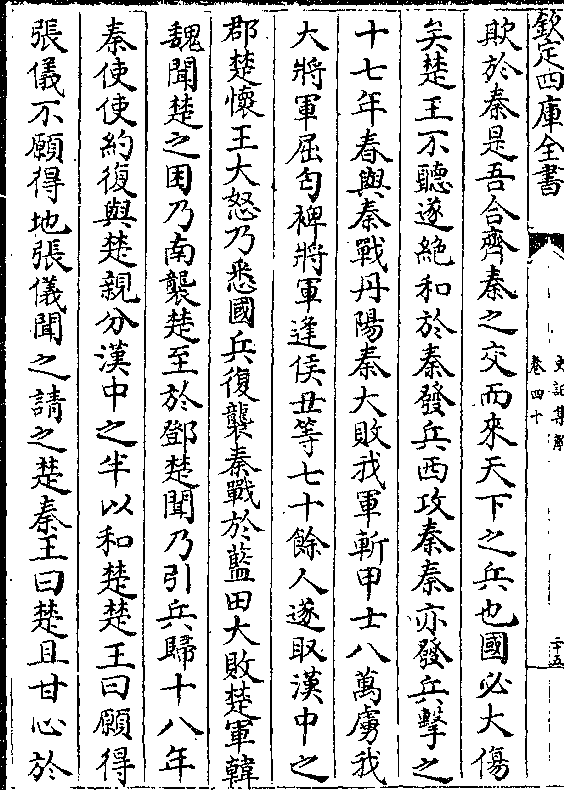 欽定四庫全書
史記集解
卷四十
二十五
欺於秦是吾合齊秦之交而來天下之兵也國必大傷
矣楚王不聽遂絶和於秦發兵西攻秦秦亦發兵擊之
十七年春與秦戰丹陽秦大敗我軍斬甲士八萬虜我
大將軍屈匄裨將軍逢侯丑等七十餘人遂取漢中之
郡楚懷王大怒乃悉國兵復襲秦戰於藍田大敗楚軍韓
魏聞楚之困乃南襲楚至於鄧楚聞乃引兵歸十八年
秦使使約復與楚親分漢中之半以和楚楚王曰願得
張儀不願得地張儀聞之請之楚秦王曰楚且甘心於